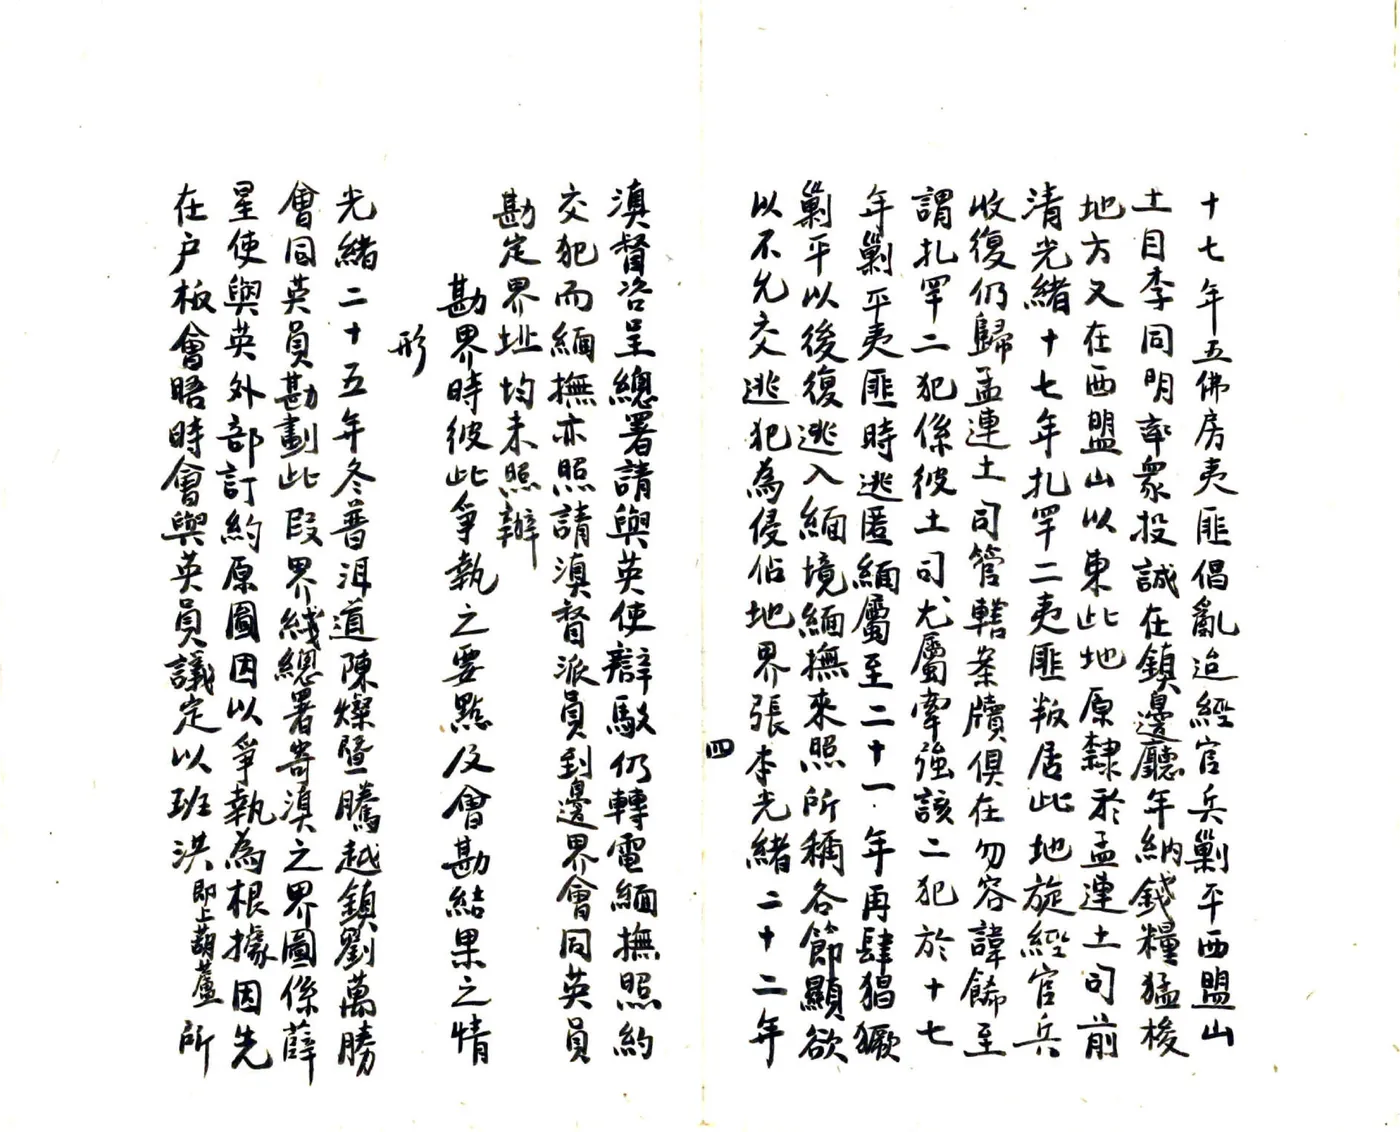 十七年五佛房夷匪倡亂迨經官兵剿平西盟山
土目李同明率衆投誠在鎮邊廳年納錢糧猛梭
地方又在西盟山以東此地原隸於孟連土司前
清光緒十七年扎罕二夷匪叛居此地旋經官兵
收復仍歸孟連土司管轄案牘俱在勿容諱餙至
謂扎罕二犯係彼土司尤屬牽強該二犯於十七
年剿平夷匪時逃匿緬屬至二十一年再肆猖獗
剿平以後復逃入緬境緬撫來照所稱各節顯欲
以不允交逃犯為侵佔地界張本光緒二十二年
四
滇督咨呈總署請與英使辯駁仍轉電緬撫照約
交犯而緬撫亦照請滇督派員到邊界會同英員
勘定界址均未照辦
勘界時彼此爭執之要點及會勘結果之情
形
光緒二十五年冬普洱道陳燦暨騰越鎮劉萬勝
會同英員勘劃此段界綫總署寄滇之界圖係薛
星使與英外部訂約原圖因以爭執為根據因先
在戶板會晤時會與英員議定以班洪即上葫蘆所